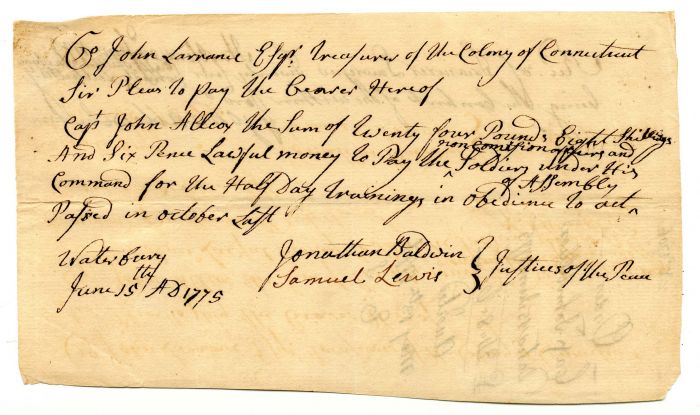 To John Larrance Esqr. Treasurer of the Colony of Connecticut
Sir Pleas to pay the bearer Hereof
Capt John Allcox the Sum of Twenty four Pounds Eight Shillings
And Six Pence Lawful money to Pay the ^ noncomisionofficers and Soldiers under His
Command for the Half Day Trainings in obedience to act ^ of Assembly
Passed in october Last
Waterbury
June 15th AD 1775
Jonathan Baldwin
Samuel Lewis
} Justices of the Peace